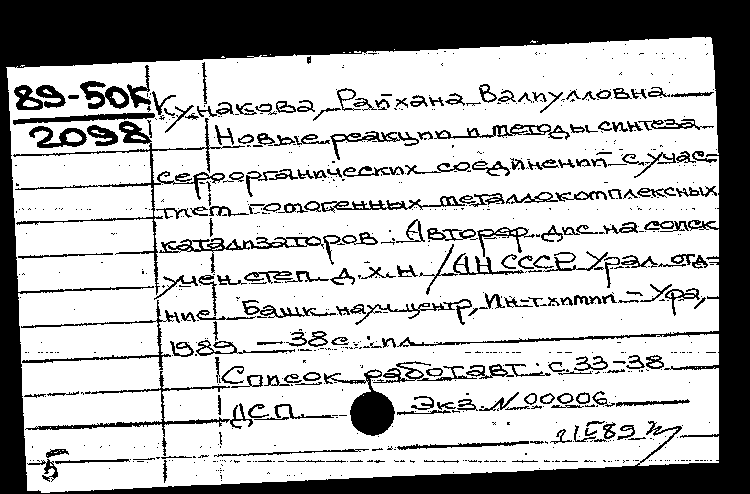 89-50К
2098
Кунакова, Райхана Валиулловна
Новые реакции и методы синтеза
сероорганических соединений с учас-
тием гомогенных металлокомплексных
катализаторов : Автореф. дис. на соиск.
учен. степ. д. х. н. / АН СССР, Урал. отд-
ние. Башк. науч. центр, Ин-т химии. – Уфа,
1989. – 38 с. : ил.
Список работ авт.: с. 33-38
ДСП. Экз. N 00006
5